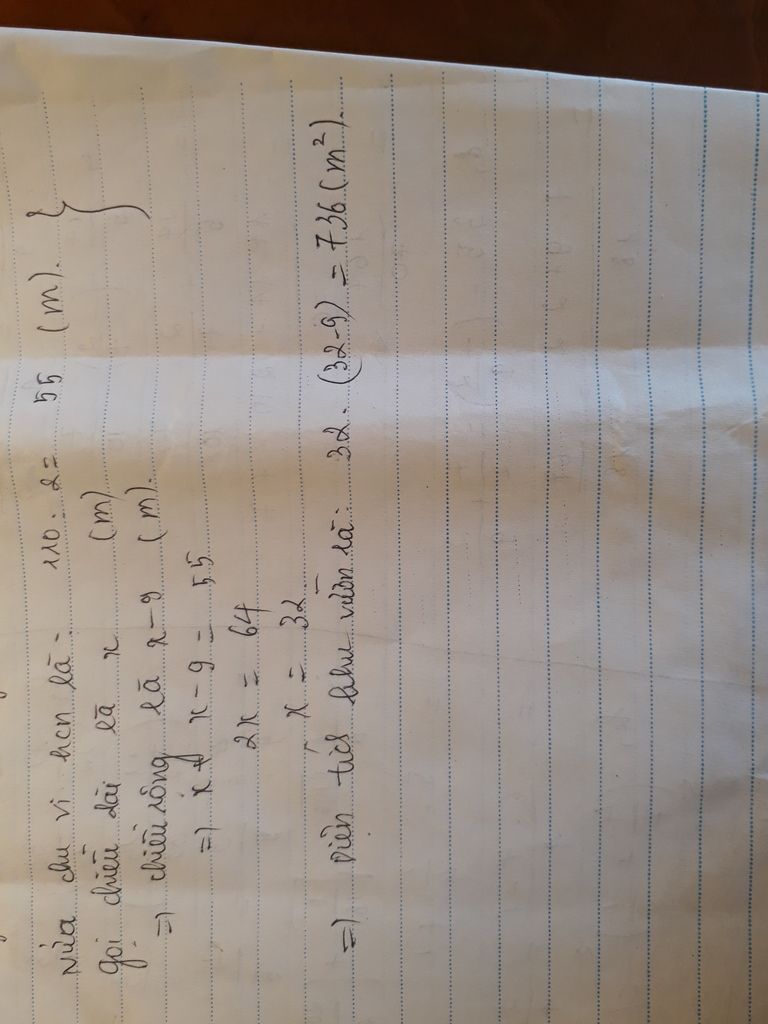 Nửa chu vi hcn là: 110 : 2 = 55 (m). }
gọi chiều dài là x (m)
=) chiều rộng là x - 9 (m).
=) x + x - 9 = 55
2x = 64
x = 32
=) Diện tích khu vườn là: 32 . (32 - 9) = 736 (m²).